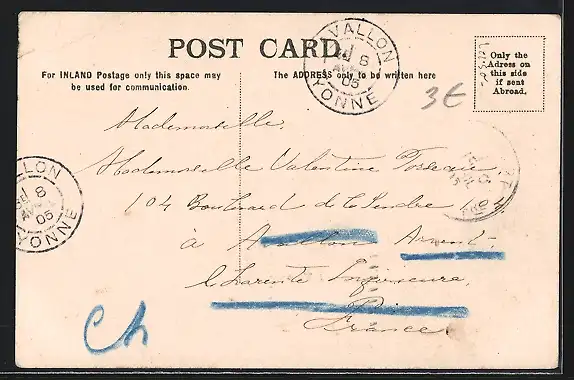 POST CARD.
For INLAND Postage only this space may
be used for communication.
The ADDRESS only to be written here
Only the
Adress on
this side
if sent
Abroad.
VALLON
8
05
YONNE
3€
VALLON
8
05
YONNE
Mademoiselle,
Mademoiselle Valentine
104 Boulevard de la 104
à Avallon Arvert
Charente Inférieure
France
Ch